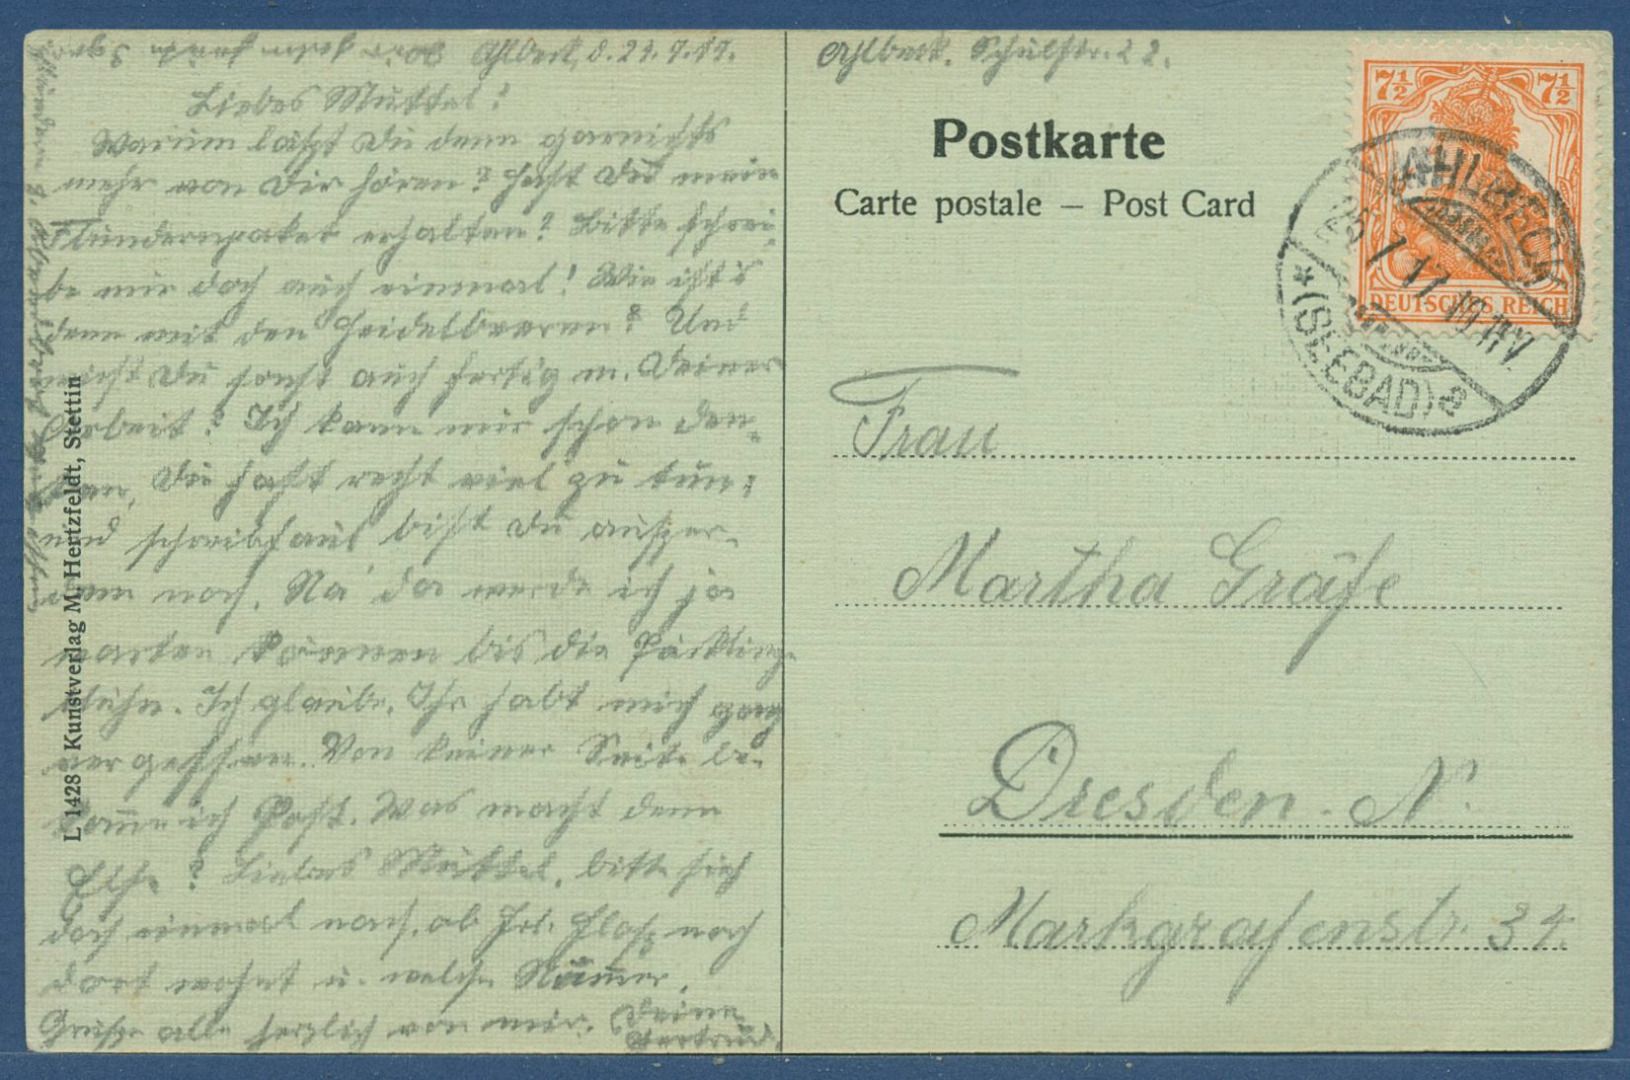 Ahlbeck, d. 24.7.17.
Liebes Muttel!
Warum läßt Du denn garnichts
mehr von Dir hören? Hast Du mein
Flundernpaket erhalten? Bitte schrei-
be mir doch auch einmal! Wie ist's
denn mit den Heidelbeeren? Und
wirst Du sonst auch fertig m. Deiner
Arbeit? Ich kann mir schon den-
ken, Du hast recht viel zu tun;
und schreibfaul bist Du außer-
dem noch. Na da werde ich ja
warten können bis die
blühn. Ich glaube, Ihr habt mich ganz
vergessen. Von keiner Seite be-
komme ich Post. Was macht denn
Else? Liebes Muttel, bitte sieh
doch einmal nach, ob Frl. noch
dort wohnt u. welche Nummer.
Grüße alle herzlich von mir. Deine
Gertrud.
Ahlbeck. Schulstr. 22.
Postkarte
Carte postale – Post Card
7½ 7½
DEUTSCHES REICH
AHLBECK
25.7.17.
* (SEEBAD) a
Frau
Martha Gräfe
Dresden-N.
Markgrafenstr. 34.
L 1428 Kunstverlag M. Hertzfeldt, Stettin